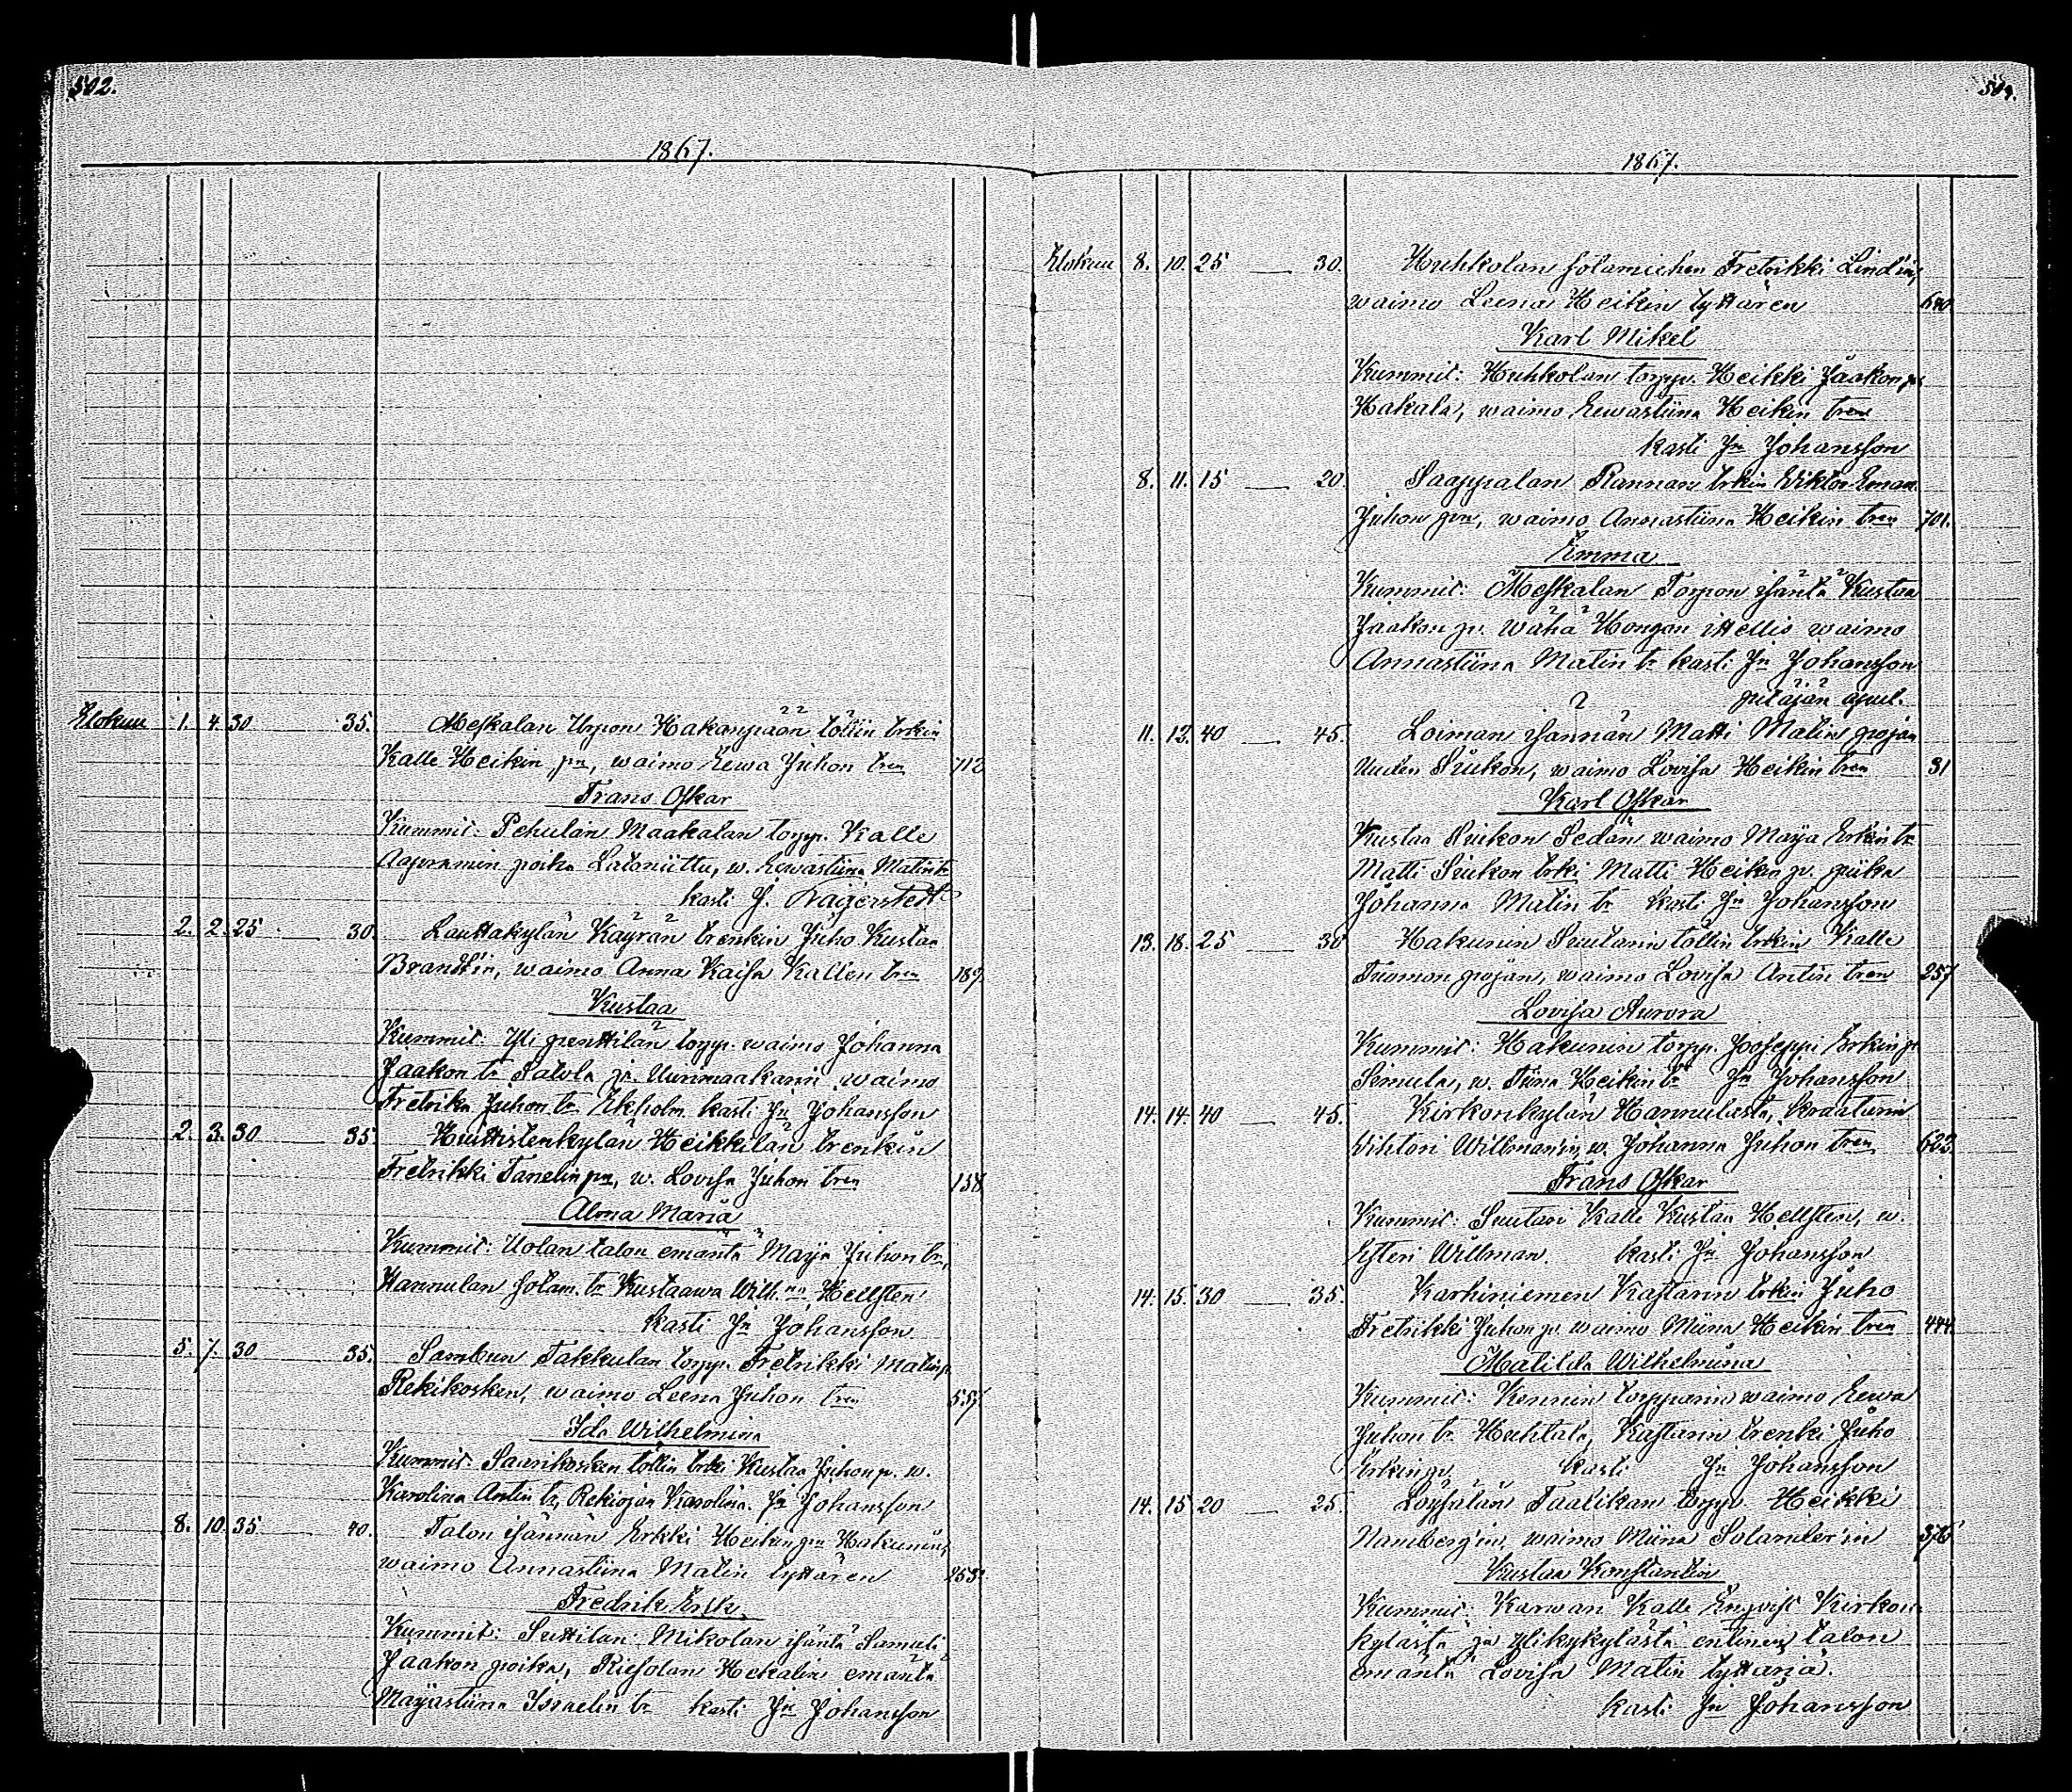 502.
1867.
Elokuu 1. 4. 30 35. Meskalan Uzpon Hakanpään töllin trkin
Kalle Heikin pn, waimo Eewa Juhon tren 712
Frans Oskar
Kummit: Pehulan Maakalan torpp. Kalle
Aapramin poika Latoniittu, w. Eewastiina Matin tr
kasti J. Kagerstedt
2. 2. 25 30. Lauttakylän Käyrän trenkin Juho Kustaa
Brandt'in, waimo Anna Kaisa Kallen tren 189.
Kustaa
Kummit: Yli penttilän torpp. waimo Johanna
Jaakon tr Salola ja Uunimaakarin waimo
Fredrika Juhon tr Ekholm kasti Jn Johansson
2. 3. 30 35. Huittistenkylän Heikkilän trenkin
Fredrikki Tanelin pn, w. Lovisa Juhon tren 158
Alma Maria
Kummit: Uolan talon emäntä Maija Juhon tr,
Hannulan solam. tr Kustaawa Wilh.na Hellsten
kasti Jn Johansson
5. 7. 30 35. Sambun Takkulan torpp. Fredrikki Matin p.
Rekikosken, waimo Leena Juhon tren 557
Ida Wilhelmina
Kummit: Saarikosken töllin trki Kustaa Juhon p. w.
Karolina Antin tr, Rekiojan Karolina. Jn Johansson
8. 10. 35 40. Talon isännän Erkki Heikin pn Hakunin,
waimo Annastiina Matin tyttären 253.
Fredrik Erik
Kummit: Suttilan Mikolan isäntä Samuli
Jaakon poika, Riesolan Hekalin emäntä
Maijastiina Israelin tr kasti Jn Johansson
1867.
Elokuu 8. 10. 25 30. Huhkolan solamiehen Fredrikki Lind'in,
waimo Leena Heikin tyttären 640.
Karl Mikel
Kummit: Huhkolan torpp. Heikki Jaakon p.
Hakala, waimo Eewastiina Heikin tren
kasti Jn Johansson
8. 11. 15 20. Saappalan Rannan trkin Wiktor Eman.
Juhon pn, waimo Annastiina Heikin tren 701.
Emma
Kummit: Meskalan Torpon isäntä Kustaa
Jaakon p. Wähä Hongon ittellis waimo
Annastiina Matin tr kasti Jn Johansson
pitäjän apul.
11. 12. 40 45. Loiman isännän Matti Matin pojan
Uuden Sukon, waimo Lovisa Heikin tren 31
Karl Oskar
Kustaa Sukon Sedän waimo Maija Erkin tr
Matti Sukon trki Matti Heikin p. piika
Johanna Matin tr kasti Jn Johansson
13. 18. 25 30 Hakunin Suutarin töllin trkin Kalle
Tuomon pojan, waimo Lovisa Antin tren 257
Lovisa Aurora
Kummit: Hakunin torpp. Jooseppi Erkin p.
Simula, w. Tiina Heikin tr Jn Johansson
14. 14. 40 45. Kirkonkylän Hannulasta, kraatarin
Vihtori Willman'in, w. Johanna Juhon tren 622.
Frans Oskar
Kummit: Suutari Kalle Kustaa Hellsten, w.
Esteri Willman. kasti Jn Johansson
14. 15. 30 35. Karhiniemen Kastarin trkin Juho
Fredrikki Juhon p. waimo Miina Heikin tren 444.
Matilda Wilhelmiina
Kummit: Kennin torpparin waimo Eewa
Juhon tr Huhtala, Kastarin trenki Juho
Erkin p. kasti Jn Johansson
14. 15 20 25. Löysälän Taatikan torpp. Heikki
Namberg'in, waimo Miina Solander'in 376
Kustaa Konstantin
Kummit: Karwan Kalle Enqvist Kirkon-
kylästä ja ylikykylästä entinen talon
emäntä Lovisa Matin tyttäriä.
kasti Jn Johansson